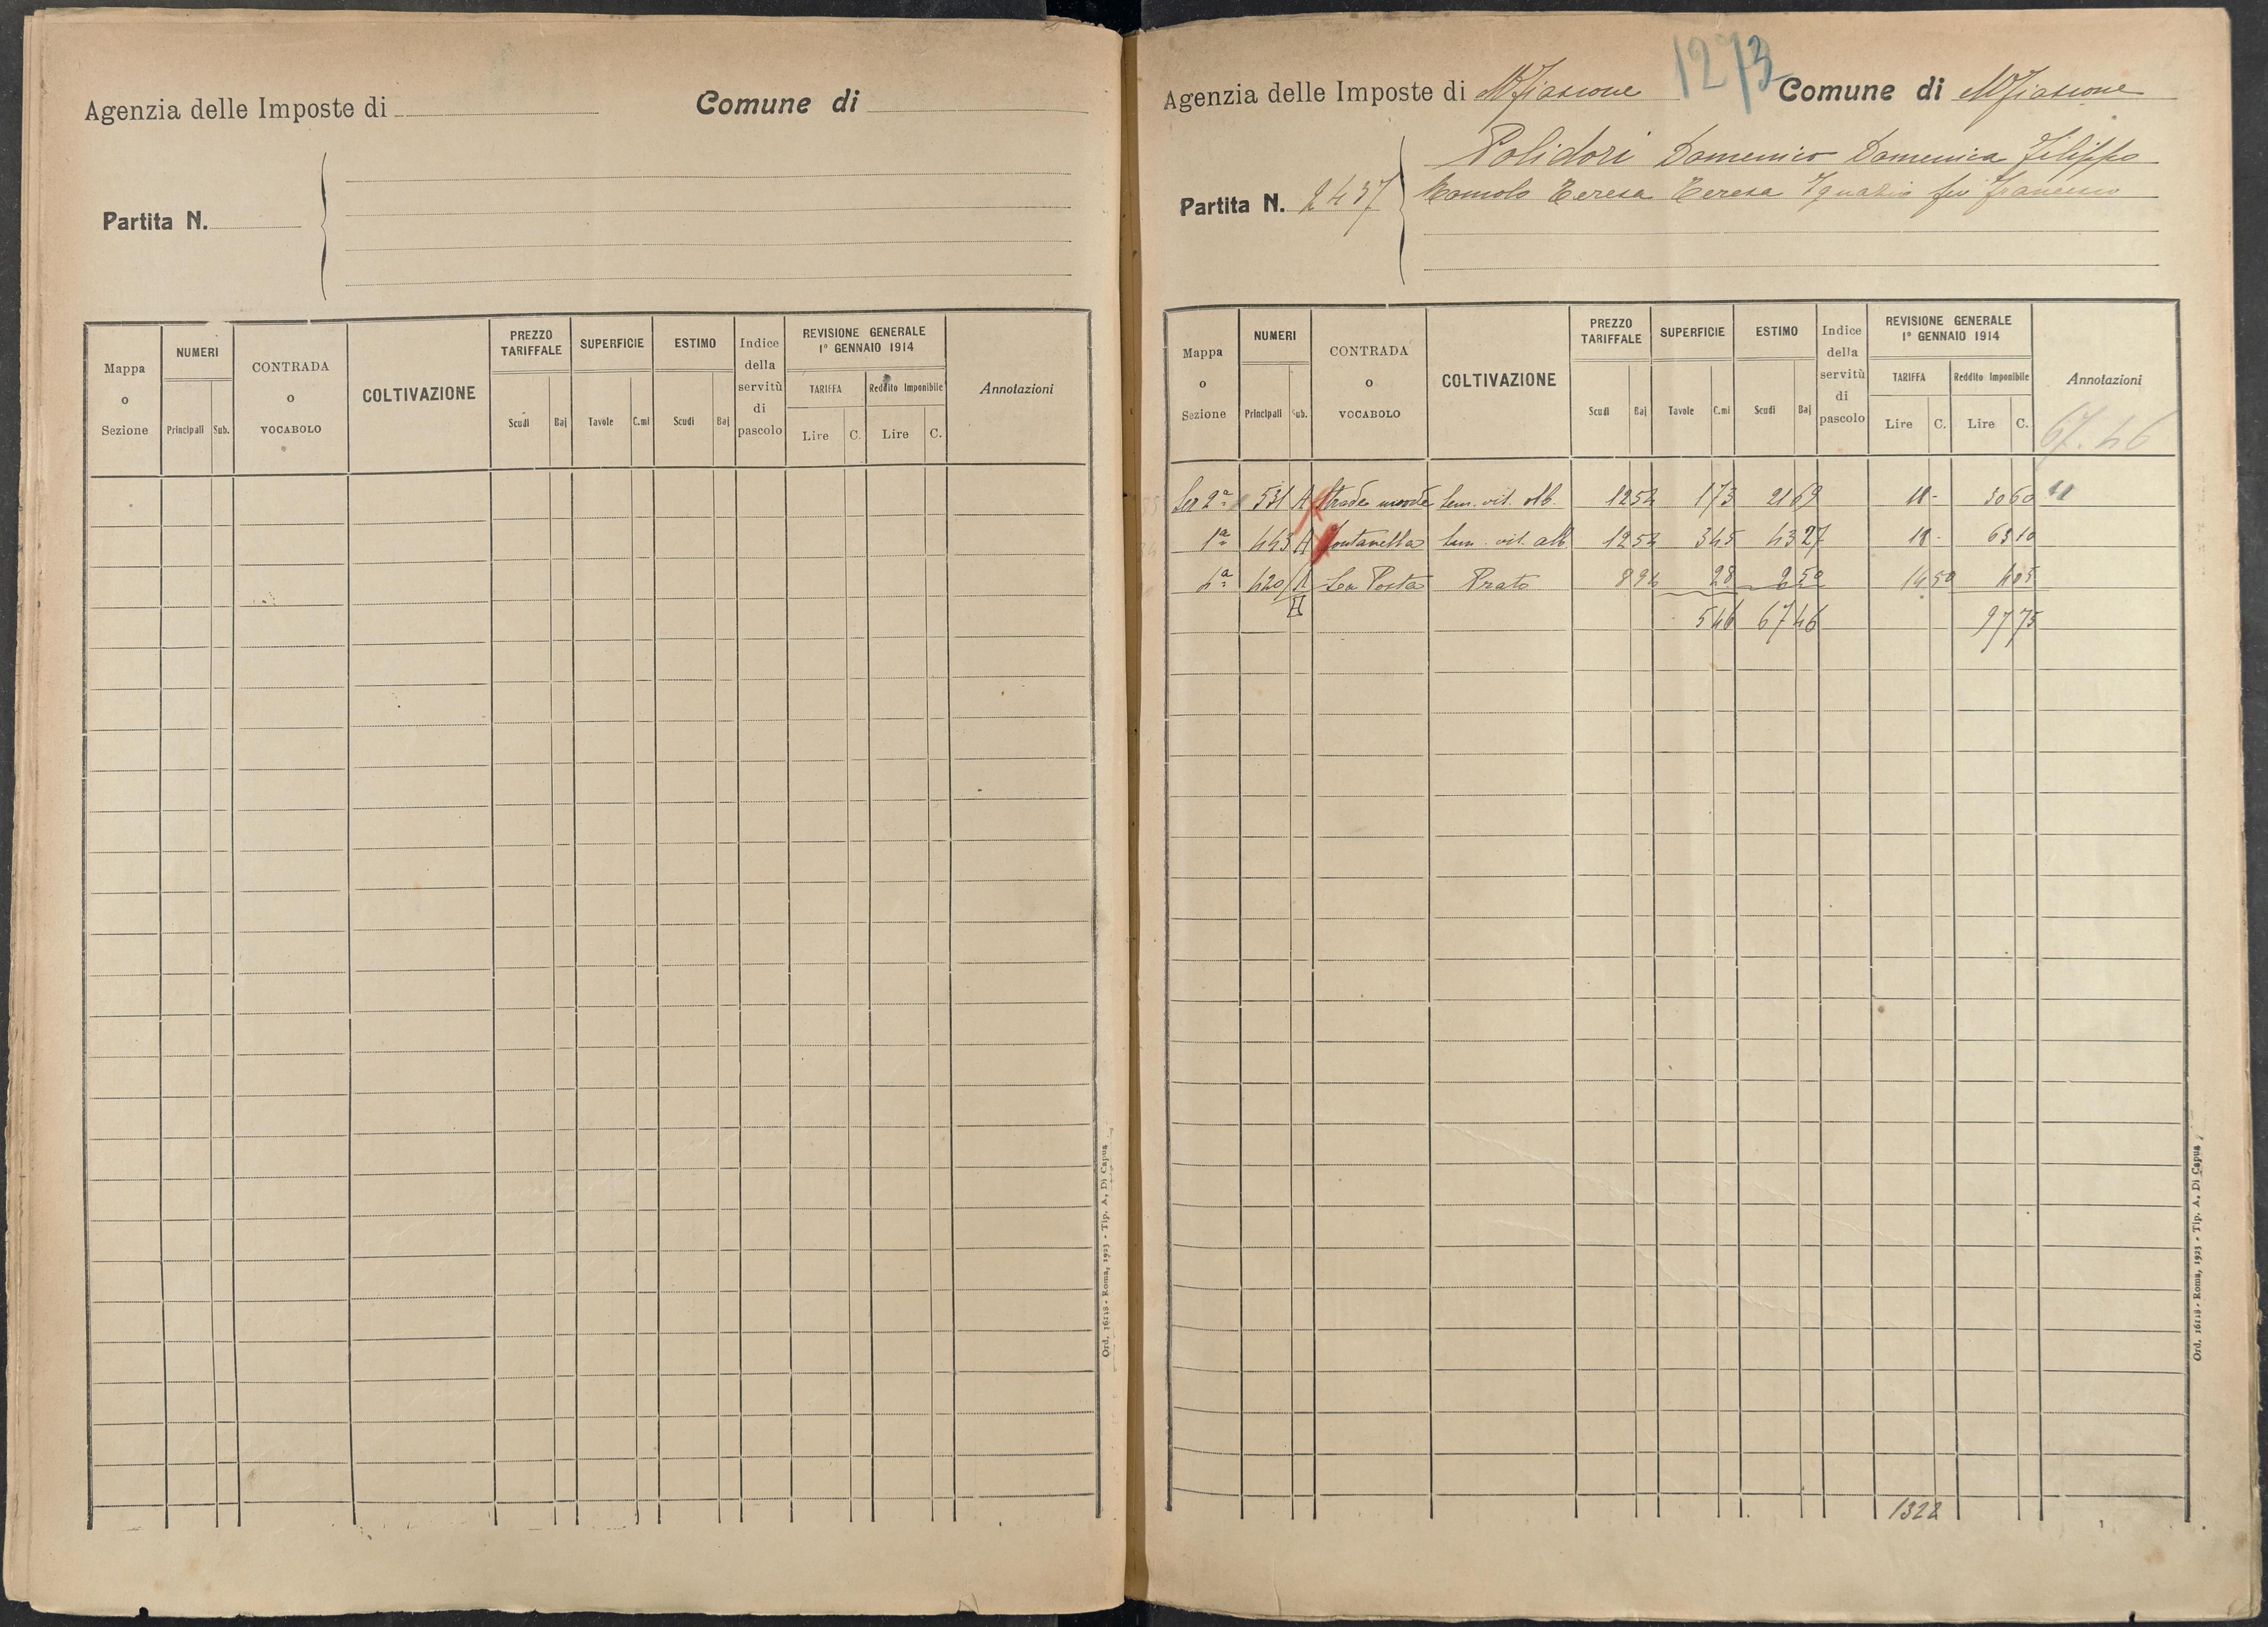 Agenzia delle Imposte di
Comune di
Partita N.
Mappa o Sezione
NUMERI
Principali Sub.
CONTRADA o VOCABOLO
COLTIVAZIONE
PREZZO TARIFFALE
Scudi Baj
SUPERFICIE
Tavole C.mi
ESTIMO
Scudi Baj
Indice della servitù di pascolo
REVISIONE GENERALE
1° GENNAIO 1914
TARIFFA Reddito Imponibile
Lire C. Lire C.
Annotazioni
Ord. 16118 - Roma, 1923 - Tip. A. Di Capua
1273
Agenzia delle Imposte di Mfiascone Comune di Mfiascone
Polidori Domenico Domenica Filippo
Partita N. 2437 Romolo Teresa Teresa Ignazio fu Francesco
Mappa o Sezione
NUMERI
Principali Sub.
CONTRADA o VOCABOLO
COLTIVAZIONE
PREZZO TARIFFALE
Scudi Baj
SUPERFICIE
Tavole C.mi
ESTIMO
Scudi Baj
Indice della servitù di pascolo
REVISIONE GENERALE
1° GENNAIO 1914
TARIFFA Reddito Imponibile
Lire C. Lire C.
Annotazioni
67.46
2ª 531 A Strada sem. vit. olb. 12 54 1 73 21 69 18 - 30 60
1ª 443 A Fontanella sem. vit. alb 12 54 3 45 43 27 18 - 63 10
4ª 420/A Prato 8 94 28 2 50 14 50 4 05
5 46 67 46 97 75
1322
Ord. 16118 - Roma, 1923 - Tip. A. Di Capua